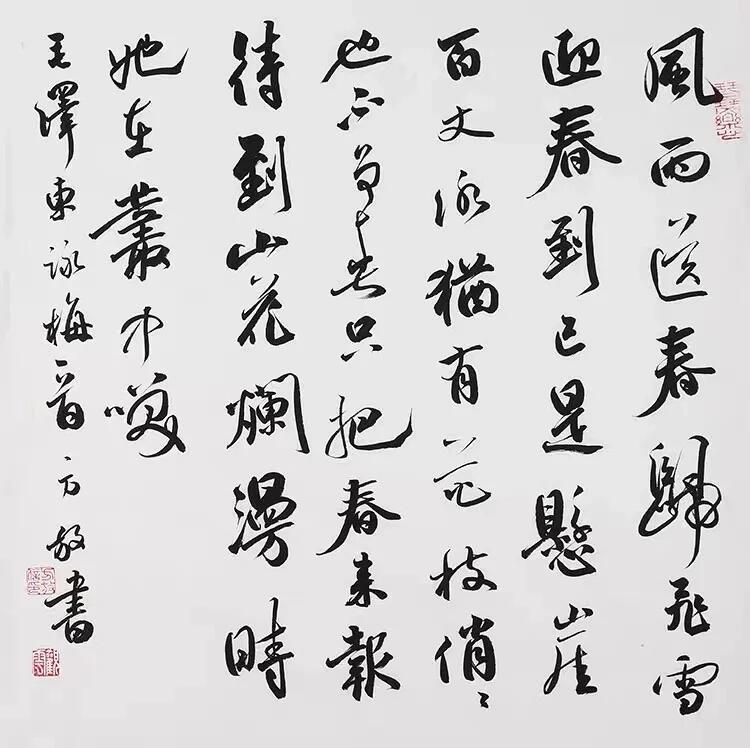 風雨送春歸飛雪
迎春到已是懸崖
百丈冰猶有花枝俏〻
也不爭春只把春來報
待到山花爛漫時
她在叢中咲
毛澤東詠梅一首 方書